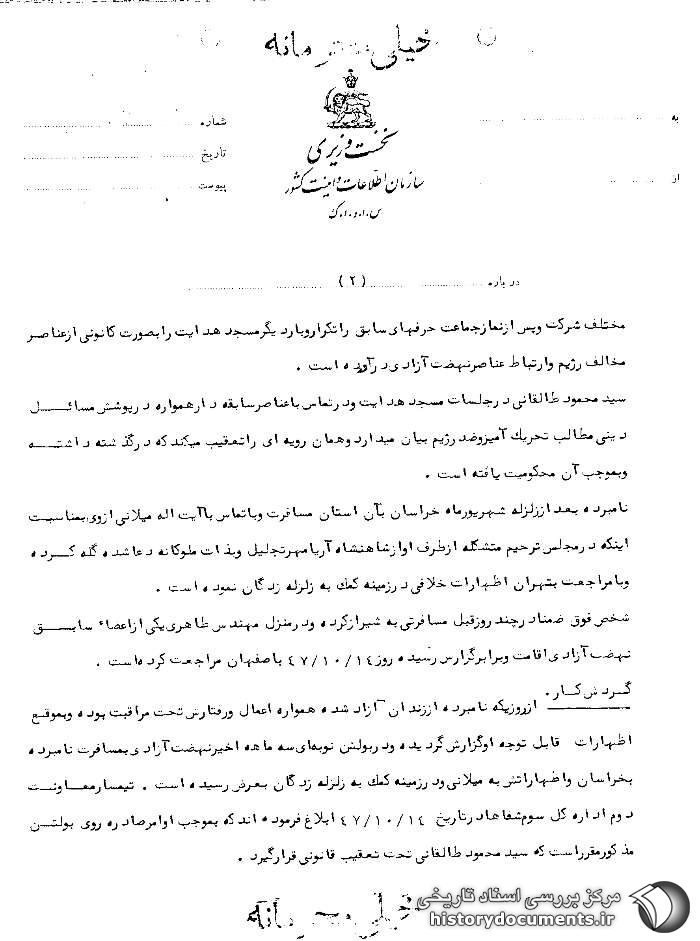 خیلی محرمانه
به
شماره
نخست وزیری
تاریخ
از
سازمان اطلاعات و امنیت کشور
پیوست
س.ا.و.ا.ک
درباره (۲)
مختلف شرکت وپس ازنمازجماعت حرفهای سابق راتکراروباردیگرمسجد هدایت رابصورت کانونی ازعناصر
مخالف رژیم وارتباط عناصرنهضت آزادی درآورده است .
سید محمود طالقانی درجلسات مسجد هدایت ودرتماس باعناصرسابقه دارهمواره درپوشش مسائـــل
دینی مطالب تحریک آمیزوضد رژیم بیان میدارد وهمان رویه ای راتعقیب میکند که درگذشته داشتـــه
وبموجب آن محکومیت یافته است .
نامبرده بعد اززلزله شهریورماه خراسان بآن استان مسافرت وباتماس باآیت اله میلانی ازوی بمناسبت
اینکه درمجلس ترحیم متشکله ازطرف اوازشاهنشاه آریامهرتجلیل وبذات ملوکانه دعاشده گله کـــرده
وبامراجعت بتهران اظهارات خلافی درزمینه کمک به زلزله زدگان نموده است .
شخص فوق ضمنا درچند روزقبل مسافرتی به شیرازکرده ودرمنزل مهندس طاهری یکی ازاعضاء سابـــق
نهضت آزادی اقامت وبرابرگزارش رسیده روز ۴۷/۱۰/۱۴ باصفهان مراجعت کرده است .
گردش کار.
ازروزیکه نامبرده اززندان آزاد شده همواره اعمال ورفتارش تحت مراقبت بوده وبموقع
اظهارات قابل توجه اوگزارش گردیده ودربولتن نوبه ای سه ماهه اخیرنهضت آزادی بمسافرت نامبرده
بخراسان واظهاراتش به میلانی ودرزمینه کمک به زلزله زدگان بعرض رسیده است . تیمسارمعـــاونت
دوم اداره کل سوم شفاها درتاریخ ۴۷/۱۰/۱۴ ابلاغ فرموده اند که بموجب اوامرصادره روی بولتـــن
مذکورمقرراست که سید محمود طالقانی تحت تعقیب قانونی قرارگیرد .
خیلی محرمانه
مرکز بررسی اسناد تاریخی
historydocuments.ir